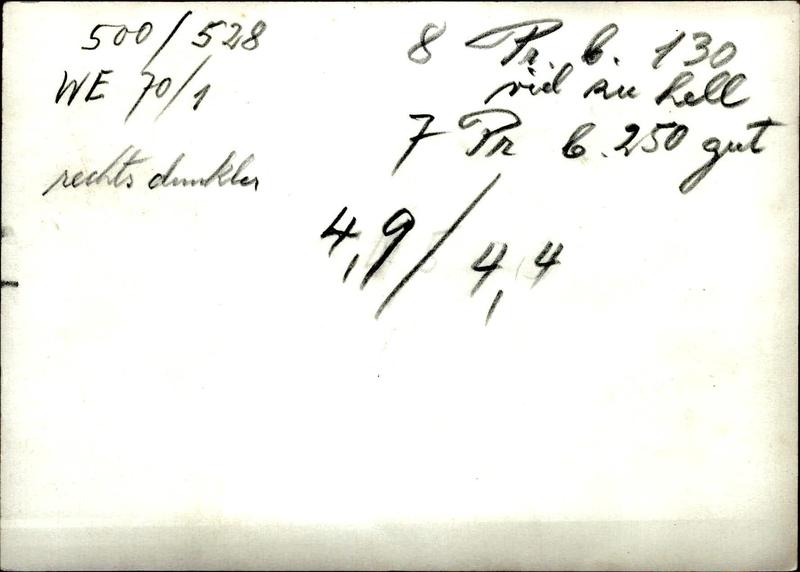 500/528
WE 70/1
rechts dunkler
8 Pr. b. 130
viel zu hell
7 Pr b. 250 gut
4,9/4,4